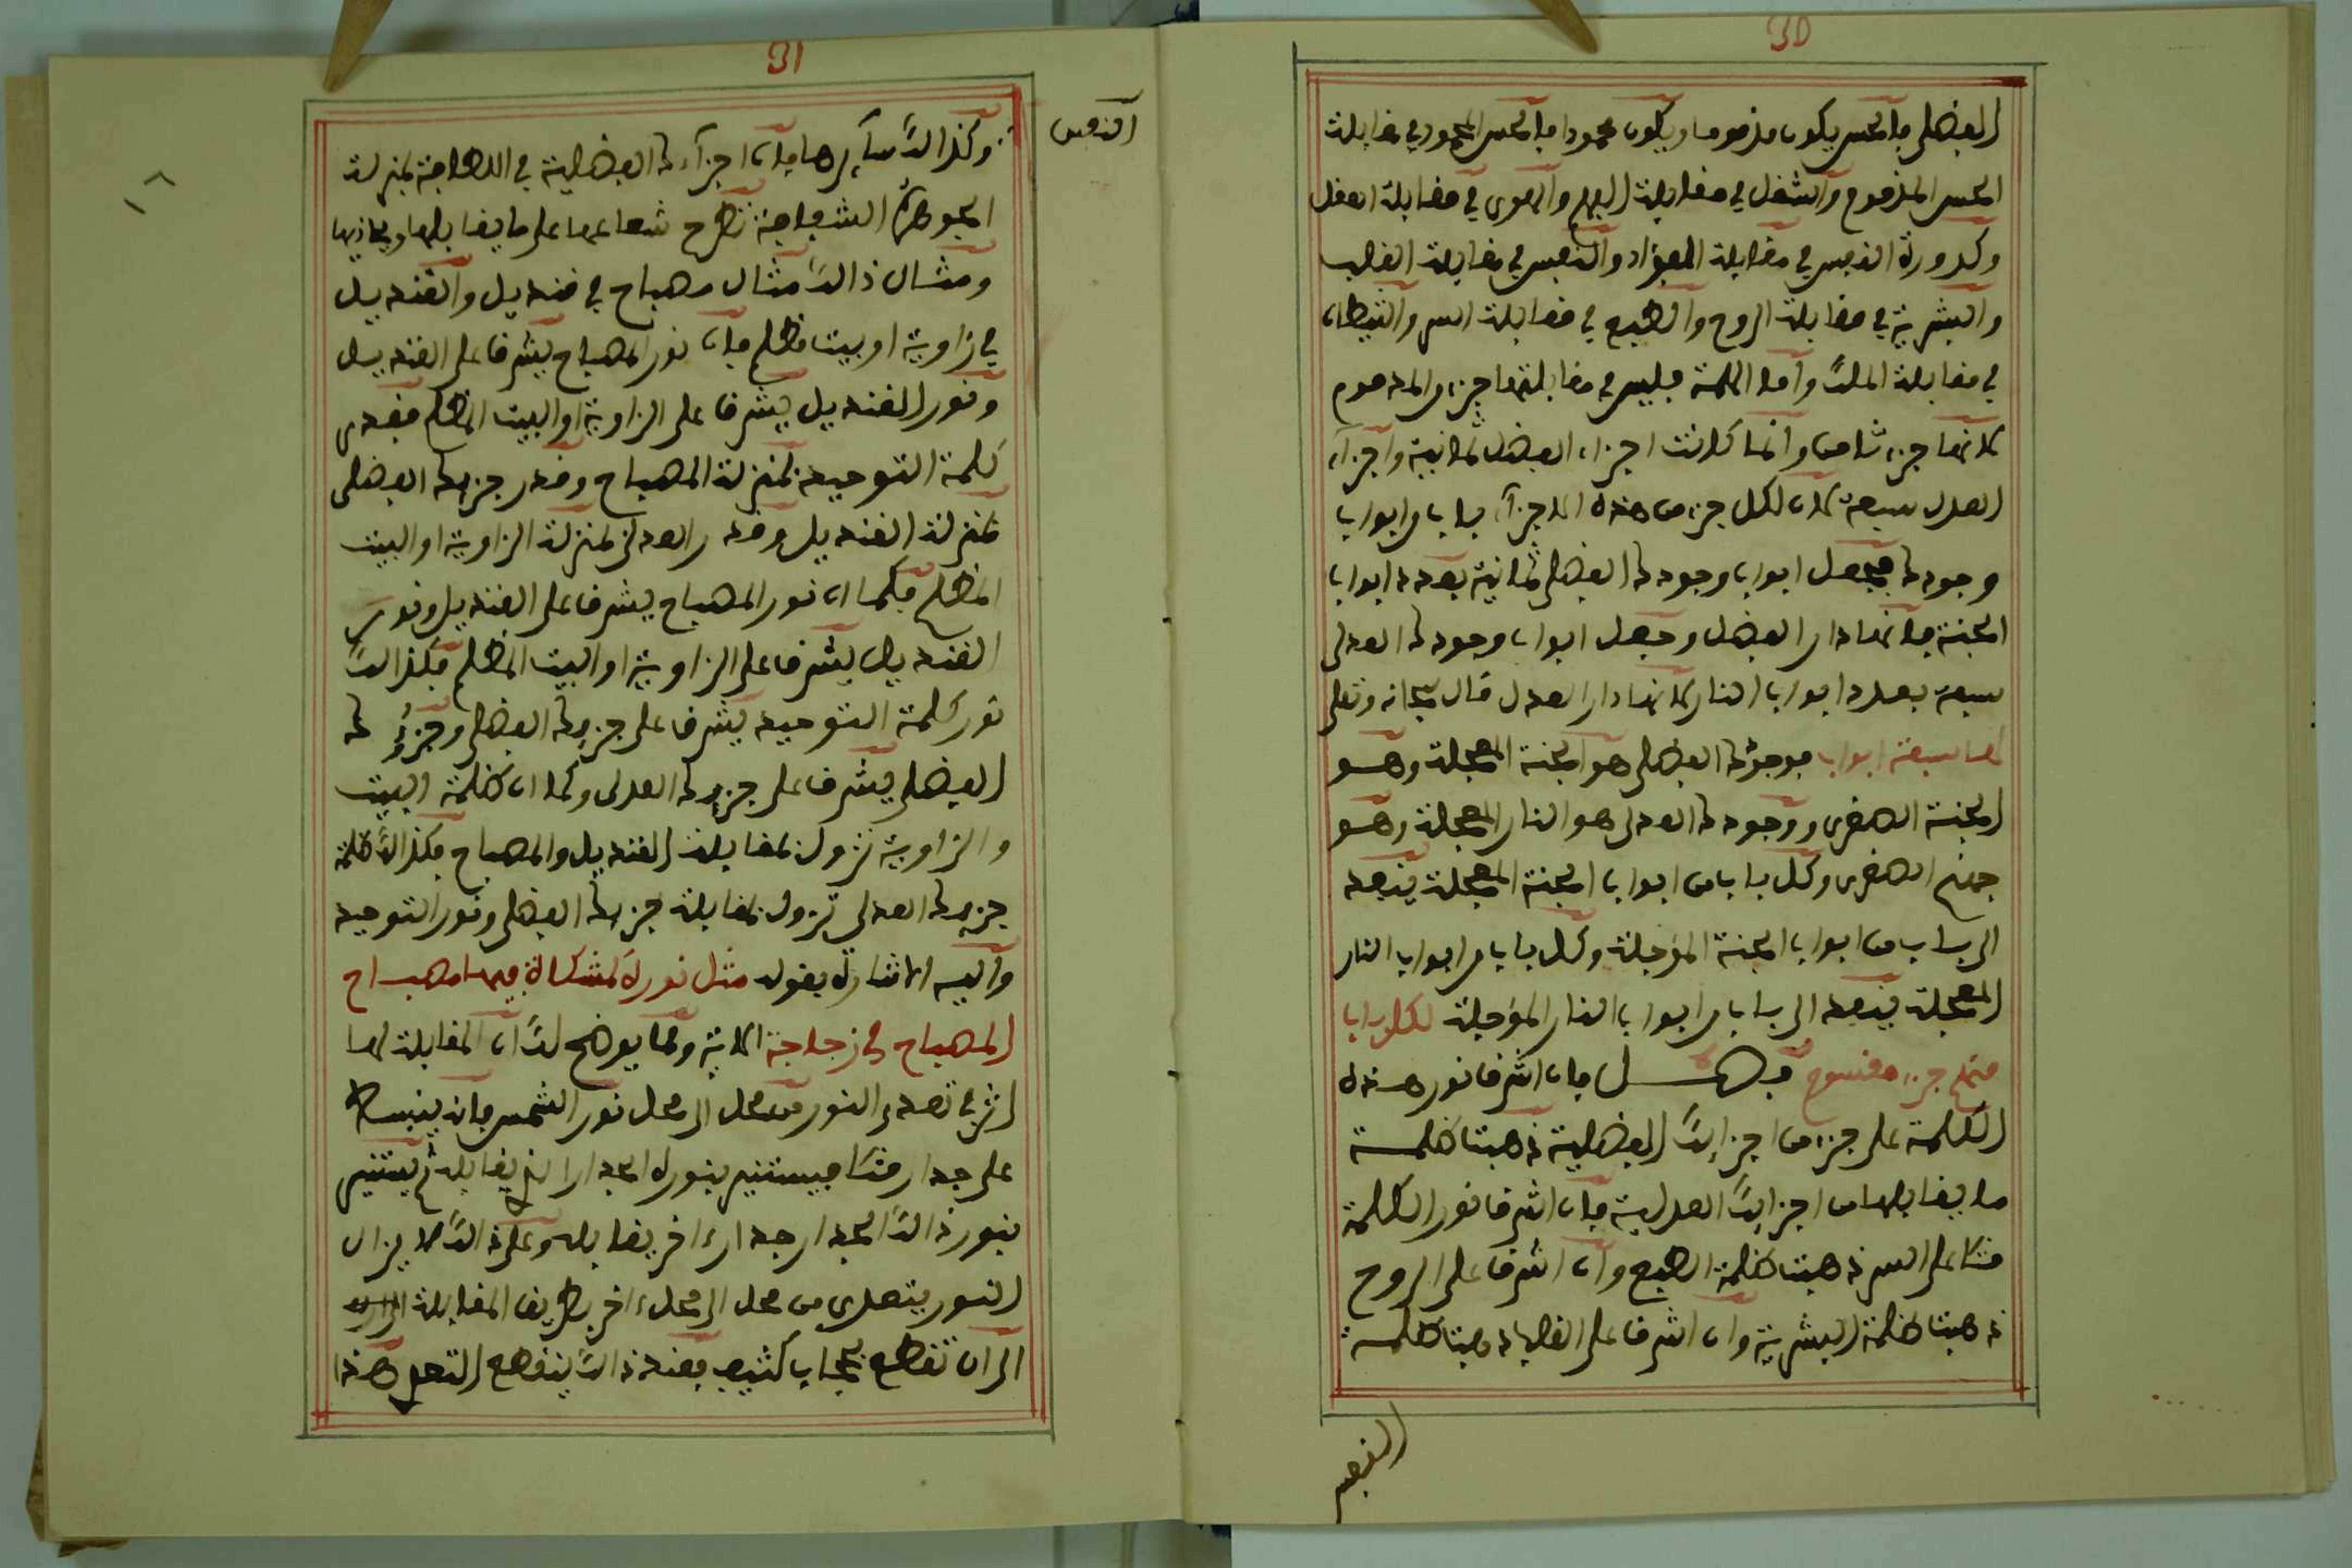 30
الفضلي فالحس يكون مذموما ويكون محمودا فالحس المحمود في مقابلة
الحس المذموم والشغل في مقابلة الفهم والهوى في مقابلة العقل
وكدورة النفس في مقابلة الفؤاد والنفس في مقابلة القلب
والبشرية في مقابلة الروح والطبع في مقابلة السر والشيطان
في مقابلة الملك وأما الكلمة فليس في مقابلتها جزء والمدموم
لانها جزء ثامن وانما كانت اجزاء الفضل ثمانية واجزاء
العدل سبعة لان لكل جزء من هذه الاجزاء بابا من ابواب
وجوده فجعل ابواب وجوده الفضلي ثمانية بعدد ابواب
الجنة فانها دار الفضل وجعل ابواب وجوده العدلي
سبعة بعدد ابواب النار لانها دار العدل قال سبحانه وتعلى
لها سبعة ابواب فوجوده الفضلي هو الجنة المعجلة وهو
الجنة الصغرى ووجوده العدلي هو النار المعجلة وهو
جهنم الصغرى وكل باب من ابواب الجنة المعجلة ينفعد
الى باب من ابواب الجنة المؤجلة وكل باب من ابواب النار
المعجلة ينفد الى باب من ابواب النار المؤجلة لكل باب
منهم جزء مقسوم فصل فان اشرف نور هذه
الكلمة على جزء من اجزائك الفضلية ذهبت ظلمة
ما يقابلها من اجزائك العدلية فان اشرف نور الكلمة
مثلا على السر ذهبت ظلمة الطبع وان اشرف على الروح
ذهبت ظلمة البشرية وان اشرف على القلب ذهبت ظلمة
النفس
31
النفس
وكذلك سايرها فان اجزاءه الفضلية في اللطافة بمنزلة
الجوهرة الشفافة تطرح شعاعها على ما يقابلها ويحاذيها
ومثال ذالك مثال مصباح في قنديل والقنديل
في زاوية او بيت مظلم فان نور المصباح يشرف على القنديل
ونور القنديل يشرف على الزاوية او البيت المظلم فقدر
كلمة التوحيد بمنزلة المصباح وقدر جزءه الفضلي
بمنزلة القنديل وقدر العدلي بمنزلة الزاوية او البيت
المظلم فكما ان نور المصباح يشرف على القنديل ونور
القنديل يشرف على الزاوية او البيت المظلم فكذالك
نور كلمة التوحيد يشرف على جزءه الفضلي وجزؤه
الفضلي يشرف على جزءه العدلي وكما ان ظلمة البيت
والزاوية تزول بمقابلة القنديل والمصباح فكذالك ظلمة
جزءه العدلي تزول بمقابلة جزءه الفضلي ونور التوحيد
واليه الاشارة بقوله مثل نوره كمشكاة فيها مصباح
المصباح في زجاجة الاية ومما يوضح لك ان المقابلة لها
اثر في تعدي النور من محل الى محل نور الشمس فانه ينبسط
على جدار مثلا فيستنير بنوره الجدار الذي يقابله ثم يستنير
بنور ذالك الجدار جدارء اخر يقابله وعلى ذالك لا يزال
النور يتعدى من محل الى محلء اخر بطريق المقابلة
الى ان تقطع بحجاب كثيف فعند ذالك ينقطع التعدي هذا